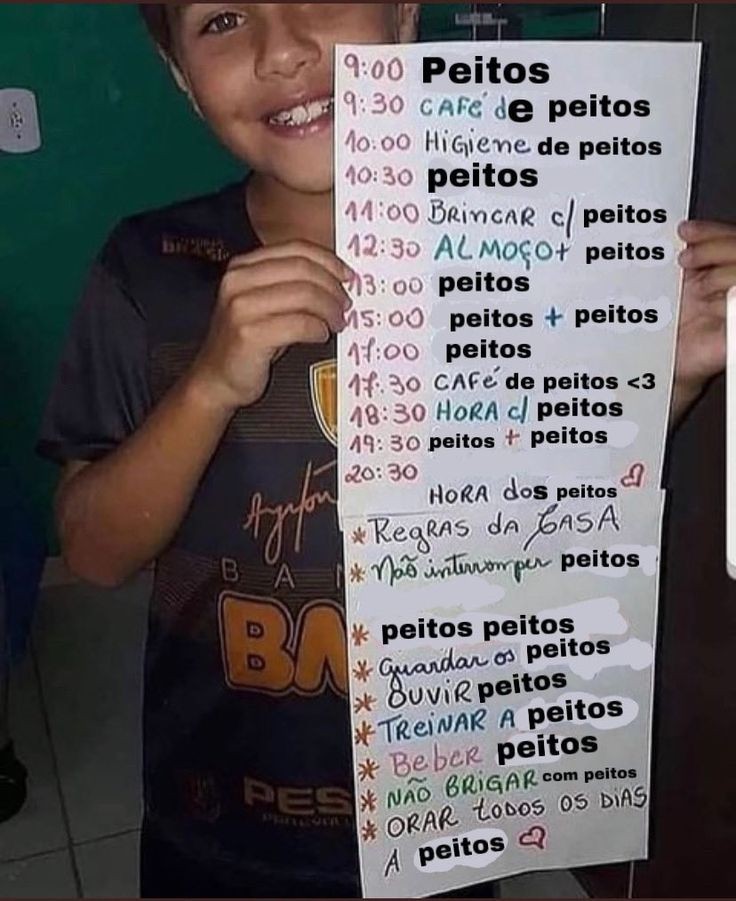 9:00 Peitos
9:30 CAFÉ de peitos
10:00 HiGiene de peitos
10:30 peitos
11:00 BRINCAR c/ peitos
12:30 ALMOÇO+ peitos
13:00 peitos
15:00 peitos + peitos
17:00 peitos
17:30 CAFÉ de peitos <3
18:30 HORA c/ peitos
19:30 peitos + peitos
20:30
HORA dos peitos
* RegRAS dA CASA
* Não interromper peitos
* peitos peitos
* Guardar os peitos
* OUVIR peitos
* TREINAR A peitos
* Beber peitos
* NÃO BRIGAR com peitos
* ORAR todos os diAS
A peitos
BRASIL
Ayrton
BAN
BM
PES